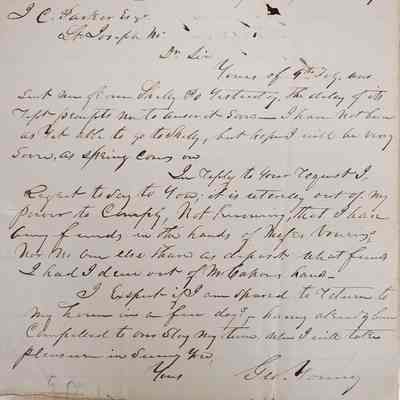 J C. Parker Esqr
St. Joseph Mo
Dr Sir
Yours of 9th July was
Sent me from Shelby Co Yesterdy, the delay of its
Rept prompts me to answer it Soon - I have not been
as yet able to go to Shelby, but hope I will be very
Soon, as Spring Coms on
In reply to Your request I
Regret to Say to You, it is utterly out of My
power to Comply, Not Knowing that I have
any funds in the hands of Messrs
Nor No one else there as deposit What funds
I had I drew out of McCahons hands
I Expect if I am Spared to return to
my home in a few days - having already been
Compelled to over Stay My time, when I will take
pleasure in Seeing You
Yours
Geo. Young